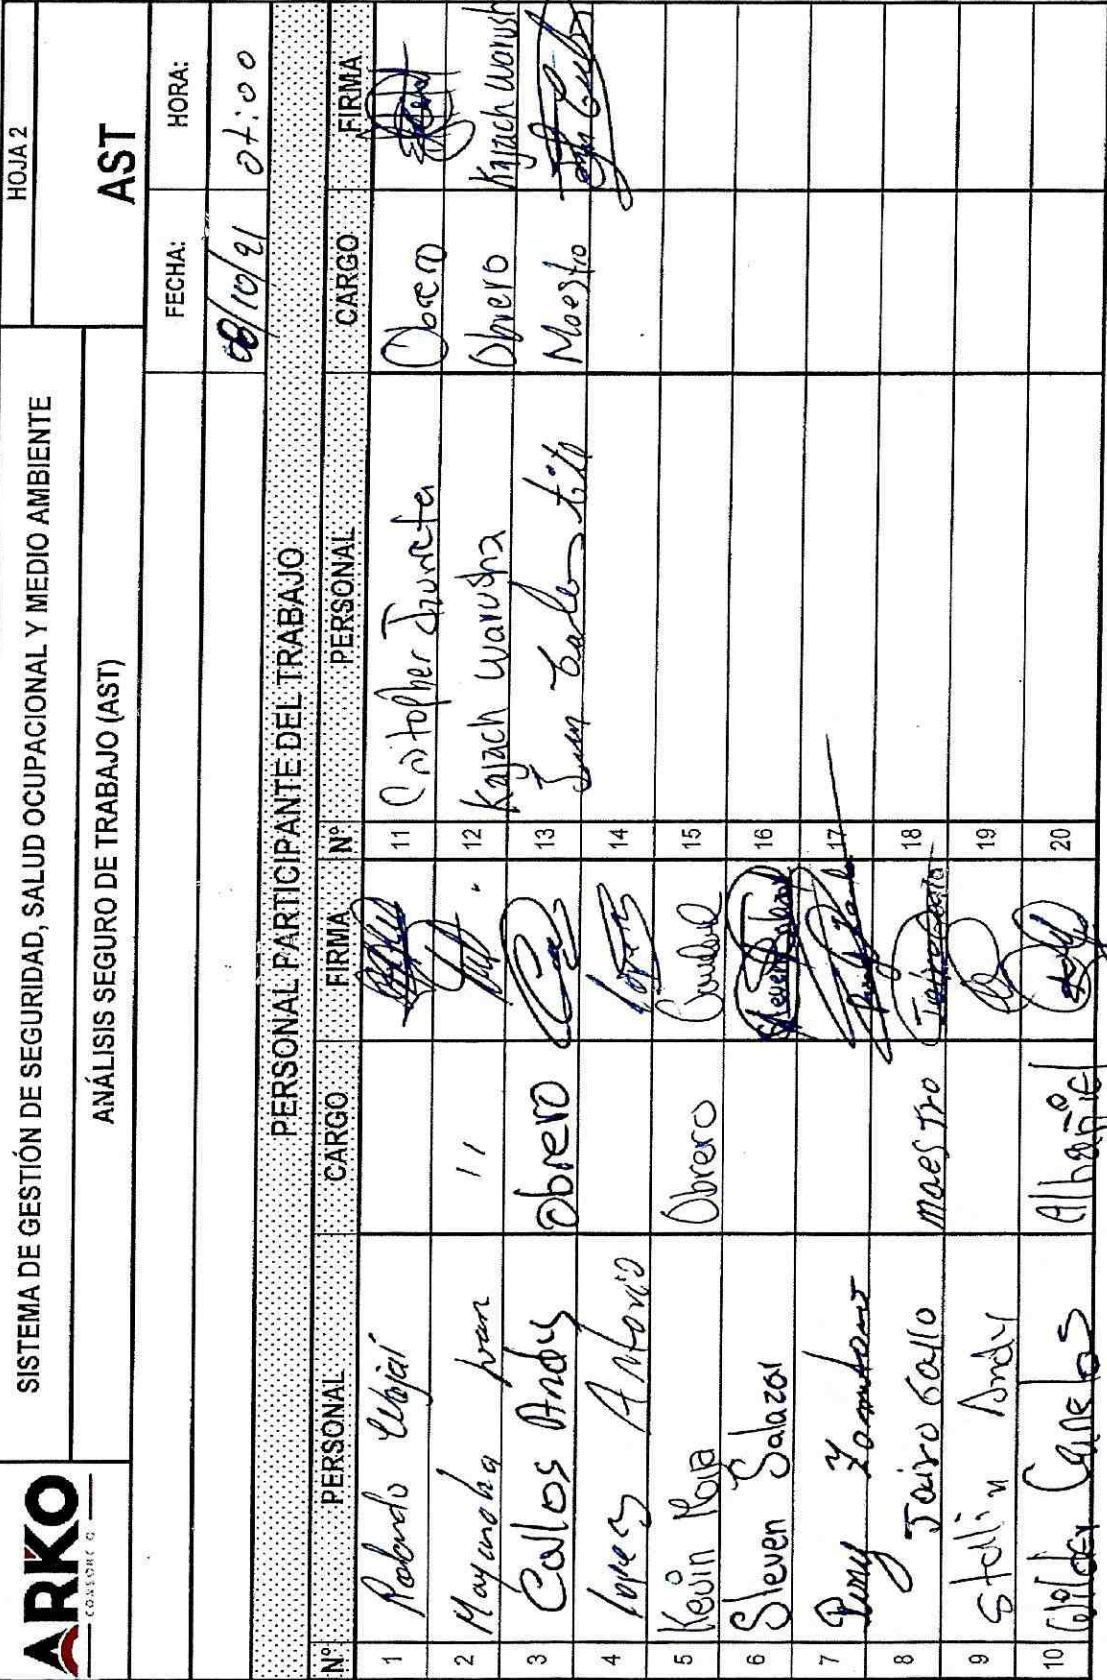 ARKO
CONSORCIO
SISTEMA DE GESTIÓN DE SEGURIDAD, SALUD OCUPACIONAL Y MEDIO AMBIENTE
HOJA 2
ANÁLISIS SEGURO DE TRABAJO (AST)
AST
FECHA: HORA:
08/10/21 07:00
PERSONAL PARTICIPANTE DEL TRABAJO
Nº PERSONAL CARGO FIRMA Nº PERSONAL CARGO FIRMA
1 Rolando 11 Cristopher Obrero
2 Mayancha Ivan 11 12 Kajach Warusha Obrero Kajach Warush
3 Carlos Andy Obrero 13 Juan Carlos tito Maestro
4 Lopez Antonio Lopez 14
5 Kevin Mora Obrero 15
6 Steven Salazar Steven Salazar 16
7 17
8 Jairo Gallo maestro Jairo Gallo 18
9 Stalin Andy 19
10 Wilder Albañil 20